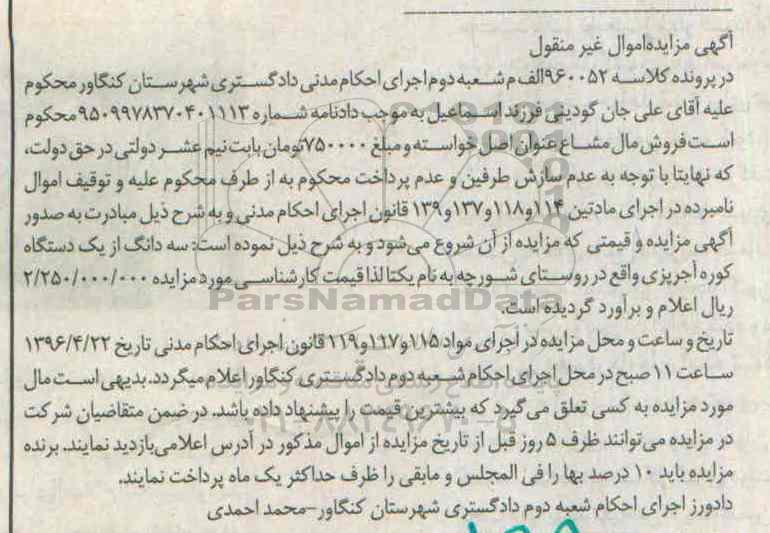 آگهی مزایده‌اموال غیر منقول
در پرونده کلاسه ۹۶۰۰۵۲الف م شعبه دوم اجرای احکام مدنی دادگستری شهرستان کنگاور محکوم
علیه آقای علی جان گودینی فرزند اسماعیل به موجب دادنامه شماره ۹۵۰۹۹۷۸۳۷۰۴۰۱۱۱۳ محکوم
است فروش مال مشاع عنوان اصل خواسته و مبلغ ۷۵۰۰۰۰تومان بابت نیم عشر دولتی در حق دولت،
که نهایتا با توجه به عدم سازش طرفین و عدم پرداخت محکوم به از طرف محکوم علیه و توقیف اموال
نامبرده در اجرای مادتین ۱۱۴و۱۱۸و۱۳۷و۱۳۹ قانون اجرای احکام مدنی و به شرح ذیل مبادرت به صدور
آگهی مزایده و قیمتی که مزایده از آن شروع می‌شود و به شرح ذیل نموده است: سه دانگ از یک دستگاه
کوره آجرپزی واقع در روستای شورچه به نام یکتا لذا قیمت کارشناسی مورد مزایده ۲/۲۵۰/۰۰۰/۰۰۰
ریال اعلام و برآورد گردیده است.
ParsNamadData
تاریخ و ساعت و محل مزایده در اجرای مواد ۱۱۵و۱۱۷و۱۱۹ قانون اجرای احکام مدنی تاریخ ۱۳۹۶/۴/۲۲
ساعت ۱۱ صبح در محل اجرای احکام شعبه دوم دادگستری کنگاور اعلام میگردد. بدیهی است مال
مورد مزایده به کسی تعلق می گیرد که بیشترین قیمت را پیشنهاد داده باشد. در ضمن متقاضیان شرکت
در مزایده می‌توانند ظرف ۵ روز قبل از تاریخ مزایده از اموال مذکور در آدرس اعلامی‌بازدید نمایند. برنده
مزایده باید ۱۰ درصد بها را فی المجلس و مابقی را ظرف حداکثر یک ماه پرداخت نمایند.
دادورز اجرای احکام شعبه دوم دادگستری شهرستان کنگاور-محمد احمدی